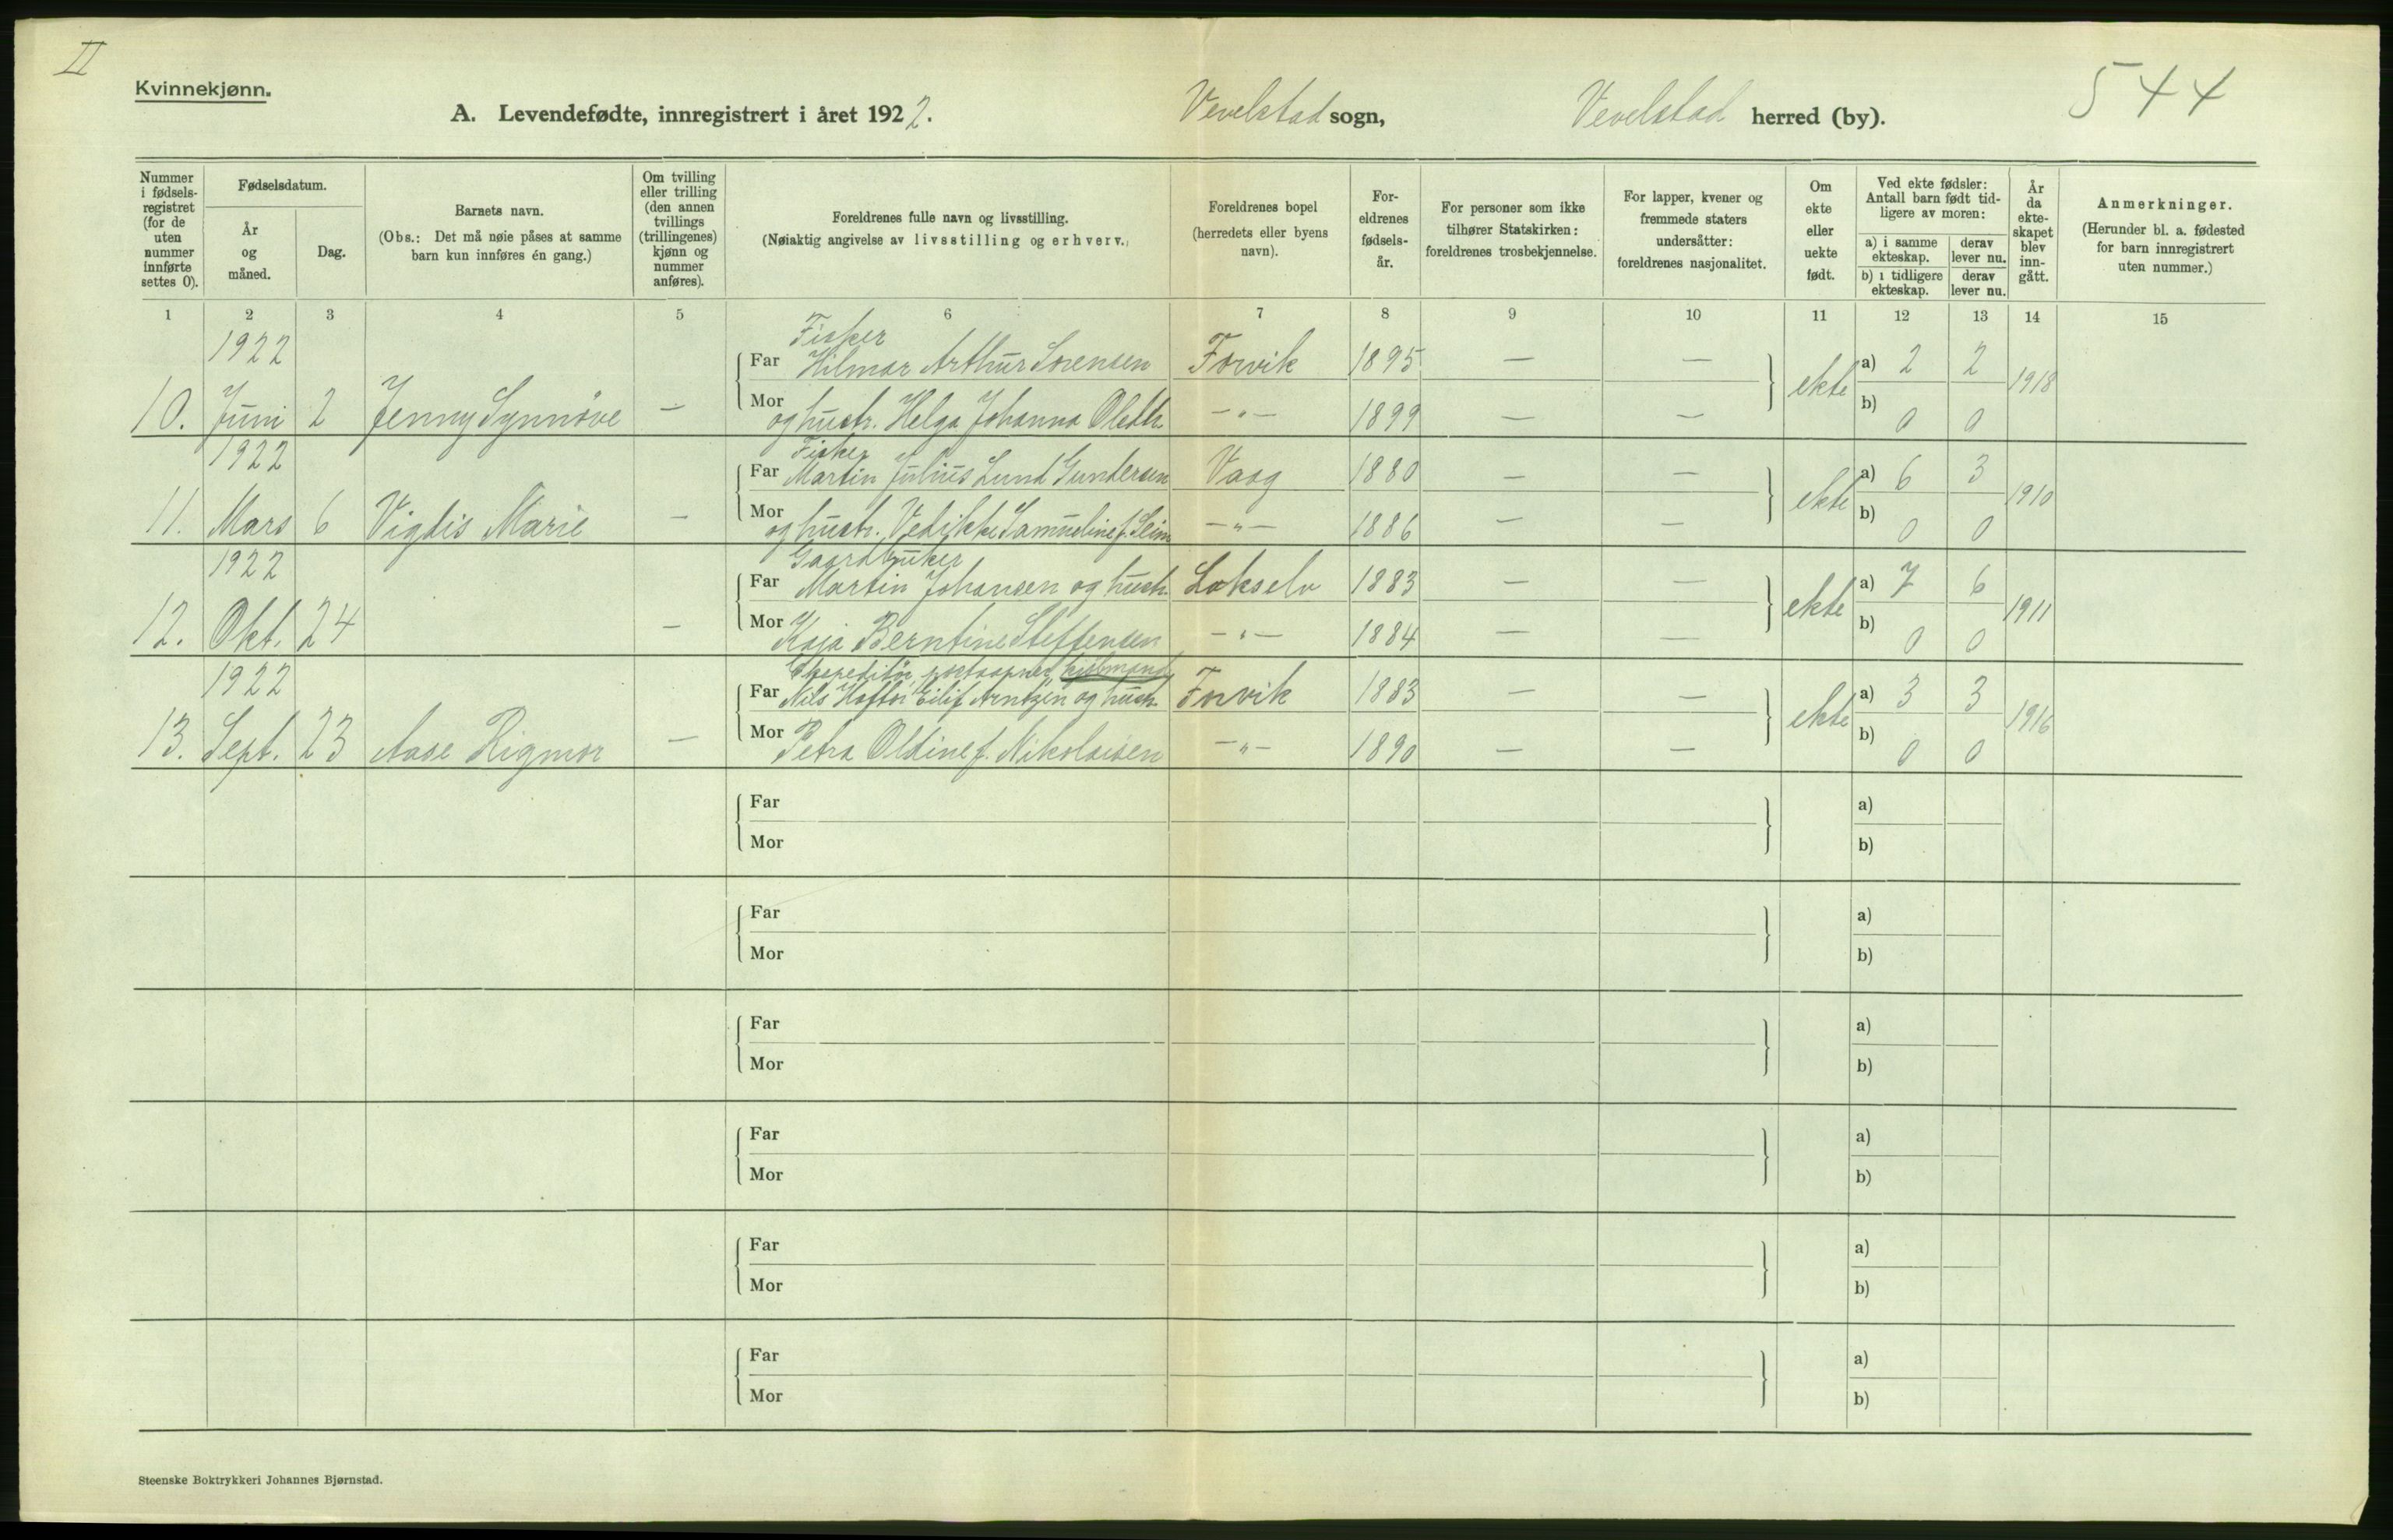 II
Kvinnekjønn.
544
A. Levendefødte, innregistrert i året 1922. Vevelstad sogn, Vevelstad herred (by).
Nummer i fødsels-registret (for de uten nummer innførte settes 0).
Fødselsdatum.
År og måned.
Dag.
Barnets navn.
(Obs.: Det må nøie påses at samme barn kun innføres én gang.)
Om tvilling eller trilling (den annen tvillings (trillingenes) kjønn og nummer anføres).
Foreldrenes fulle navn og livsstilling.
(Nøiaktig angivelse av livsstilling og erhverv.)
Foreldrenes bopel (herredets eller byens navn).
For-eldrenes fødsels-år.
For personer som ikke tilhører Statskirken: foreldrenes trosbekjennelse.
For lapper, kvener og fremmede staters undersåtter: foreldrenes nasjonalitet.
Om ekte eller uekte født.
Ved ekte fødsler: Antall barn født tid-ligere av moren:
a) i samme ekteskap.
derav lever nu.
b) i tidligere ekteskap.
derav lever nu.
År da ekte-skapet blev inn-gått.
Anmerkninger.
(Herunder bl. a. fødested for barn innregistrert uten nummer.)
1 2 3 4 5 6 7 8 9 10 11 12 13 14 15
1922 Fisker
Far Hilmar Arthur Sorensen Forvik 1895 — — a) 2 2
10. Juni 2 Jenny Synnöve — Mor og hustr. Helga Johanna Olsdtr. —"— 1899 — — ekte b) 0 0 1918
1922 Fisker
Far Martin Julius Lund Gundersen Vaag 1880 — — a) 6 3
11. Mars 6 Vigdis Marie — Mor og hustr. Vedikke Samueline f. Seim —"— 1886 — — ekte b) 0 0 1910
1922 Gaardbruker
Far Martin Johansen og hustr. Lakselv 1883 — — a) 7 6
12. Okt. 24 — Mor Kaja Berntine Steffensen —"— 1884 — — ekte b) 0 0 1911
1922 Ekspeditör, postaapner, kjøbmand
Far Nils Haftor Eilif Arntzen og hustr. Forvik 1883 — — a) 3 3
13. Sept. 23 Aase Rigmor — Mor Petra Oldine f. Nikolaisen —"— 1890 — — ekte b) 0 0 1916
Far a)
Mor b)
Far a)
Mor b)
Far a)
Mor b)
Far a)
Mor b)
Far a)
Mor b)
Far a)
Mor b)
Steenske Boktrykkeri Johannes Bjørnstad.